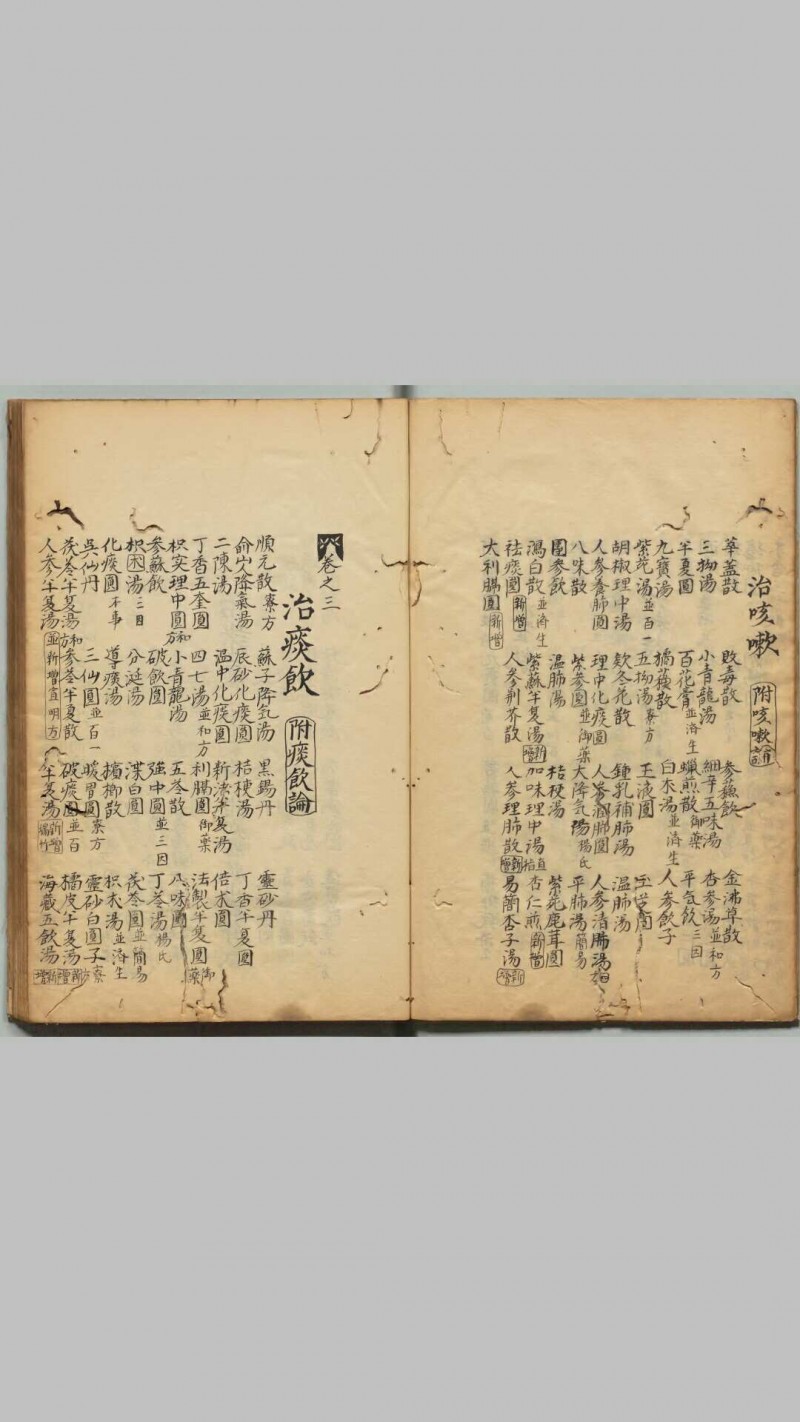 治咳嗽 附咳嗽論
華蓋散 敗毒散 參蘇飲 金沸草散
三拗湯 小青龍湯 細辛五味湯 杏參湯並和方
半夏圓 百花膏並済生 蠟煎散御藥 平氣飲三因
九寶湯 橘蘓散 白朮湯並済生 人參飲子
紫菀湯並百一 五拗湯寮方 玉液圓
胡椒理中湯 欵冬花散 鍾乳補肺湯 温肺湯
人參養肺圓 理中化痰圓 人參潤肺圓 人參清肺湯
八味散 紫參圓並御藥 大降气湯楊氏 平肺湯簡易
團參飲 温肺湯 桔梗湯 紫菀鹿茸圓
瀉白散並済生 紫蘇半夏湯新增 加味理中湯 杏仁煎新增
祛痰圓新增 人參荆芥散 人參理肺散 易簡杏子湯新增
大利膈圓新增
卷之三
治痰飲 附痰飲論
順元散寮方 蘇子降氣湯 黒錫丹 靈砂丹
俞山人降氣湯 辰砂化痰圓 桔梗湯 丁香半夏圓
二陳湯 温中化痰圓 新法半夏湯 倍朮圓
丁香五奎圓 四七湯並和方 利膈圓御藥 法製半夏圓御藥
枳实理中圓和方 小青龍湯 五苓散 八味圓
參蘇飲 破飲圓 強中圓並三因 丁苓湯楊氏
枳困湯三因 分涎湯 渫白圓 茯苓圓並簡易
化痰圓本事 導痰湯 檳榔散 枳朮湯並済生
吳仙丹 三仙圓並百一 暖胃圓寮方 靈砂白圓子寮方
茯苓半夏湯和方 參苓半夏散 破痰圓並百 橘皮半夏湯新增
人參半夏湯並新增宣明方 半夏湯新增 海藏五飲湯新增